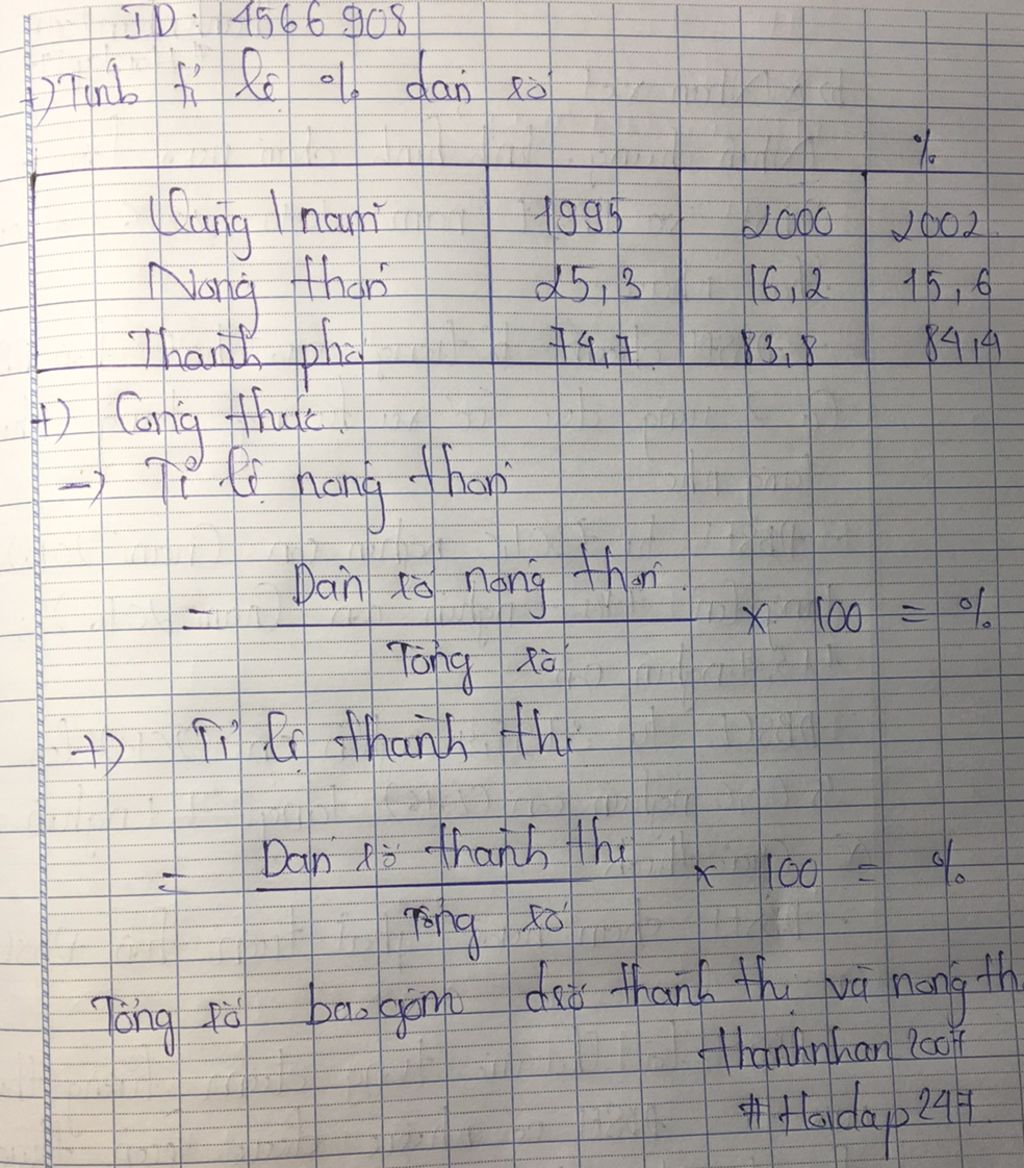 ID: 4566908
+) Tính tỉ lệ % dân số
%
Vùng / năm 1995 2000 2002
Nông thôn 25,3 16,2 15,6
Thành phố 74,7 83,8 84,4
+) Công thức
-) Tỉ lệ nông thôn
= Dân số nông thôn / Tổng số × 100 = %
+) Tỉ lệ thành thị
= Dân số thành thị / Tổng số × 100 = %
Tổng số bao gồm dsố thành thị và nông th
thanhnhan2007
# Hoidap247